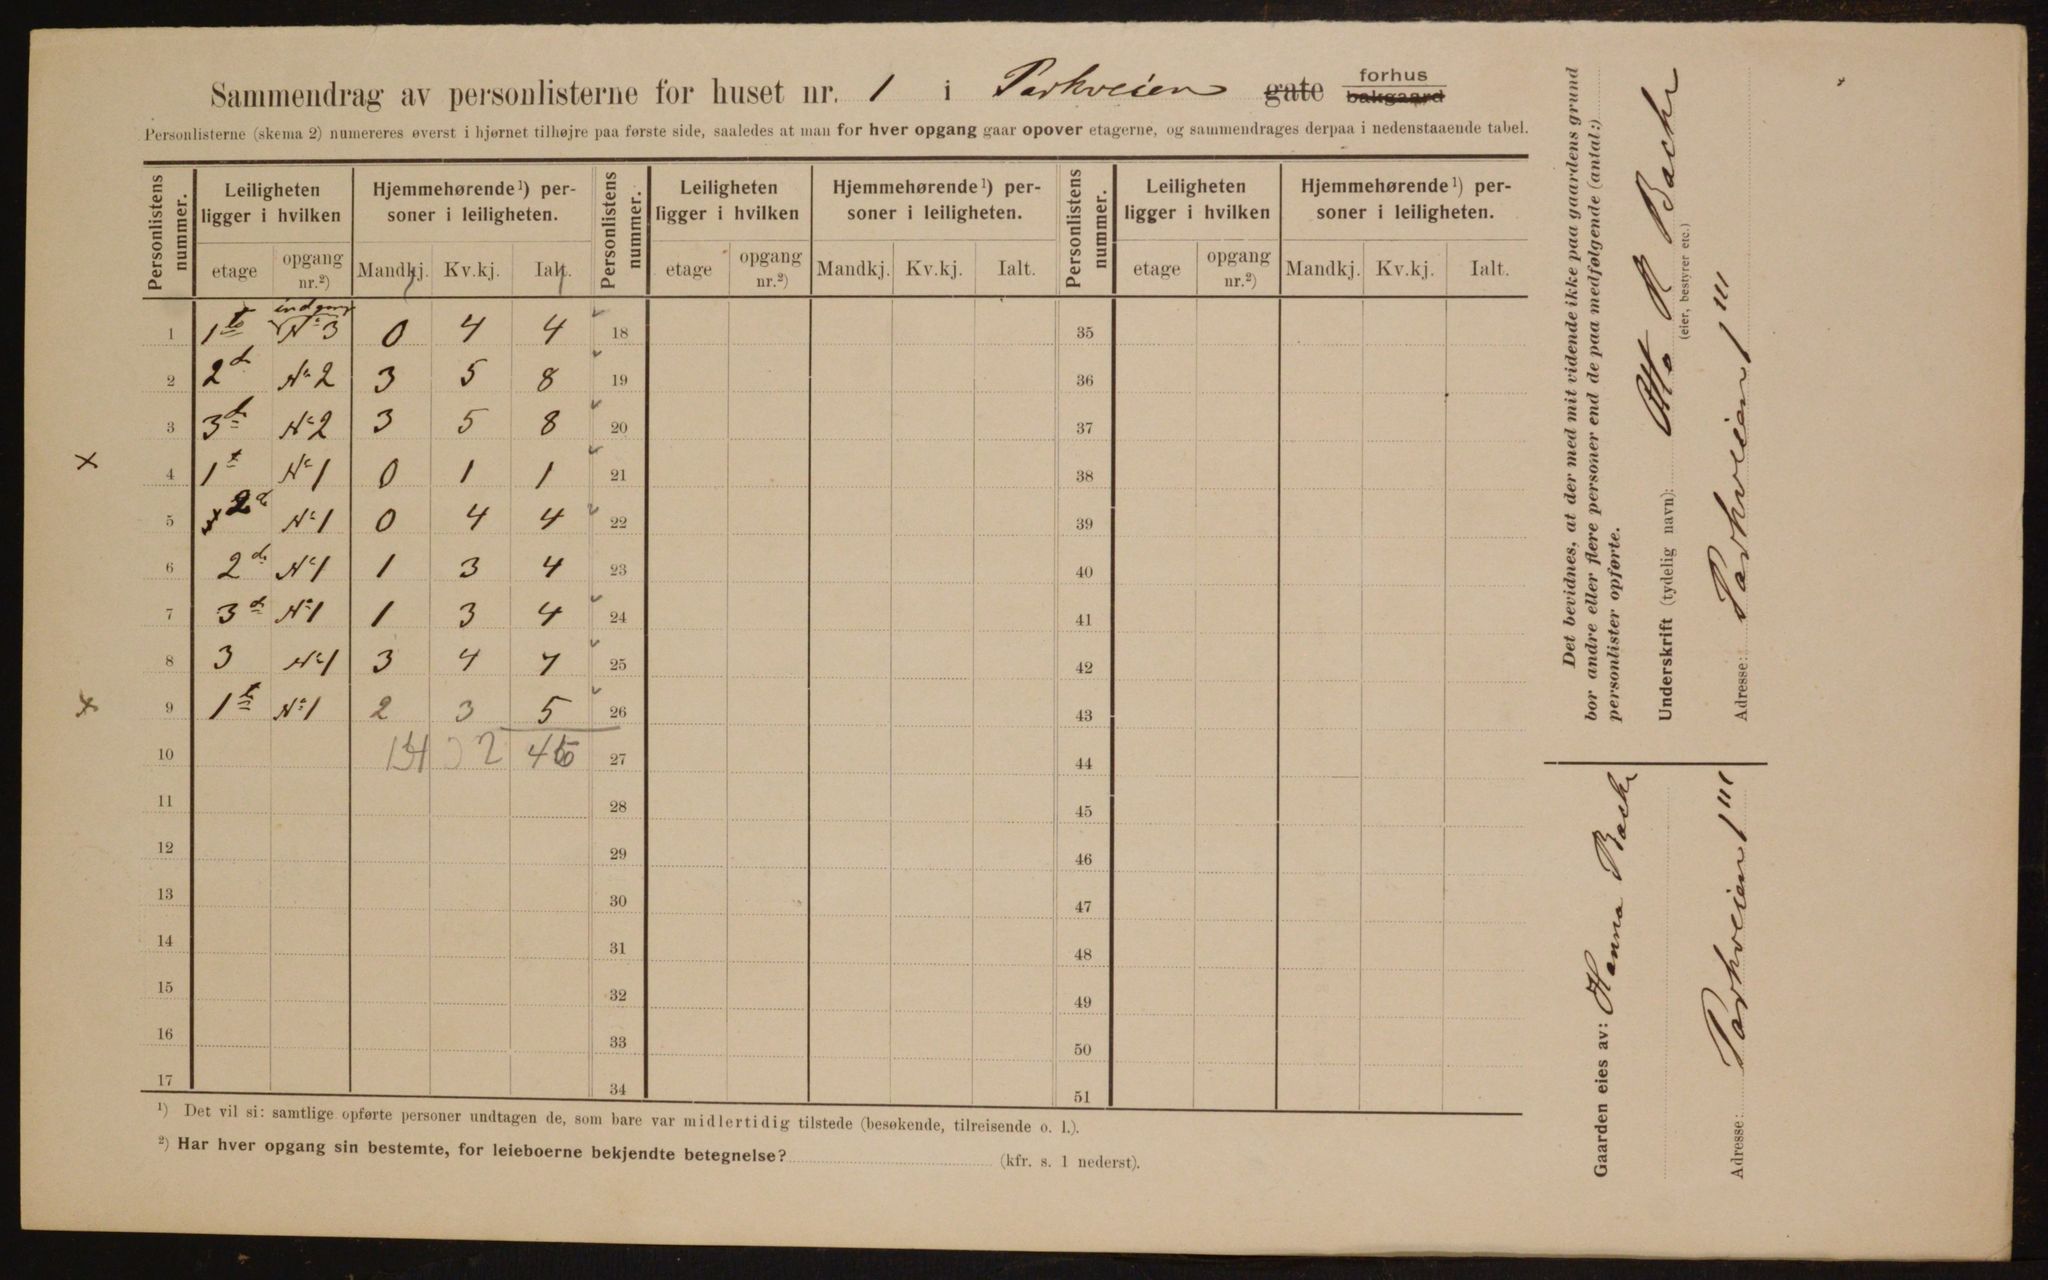 Sammendrag av personlisterne for huset nr. 1 i Parkveien gate forhus bakgaard
Personlisterne (skema 2) numereres øverst i hjørnet tilhøjre paa første side, saaledes at man for hver opgang gaar opover etagerne, og sammendrages derpaa i nedenstaaende tabel.
Personlistens nummer. Leiligheten ligger i hvilken Hjemmehørende ¹) personer i leiligheten. Personlistens nummer. Leiligheten ligger i hvilken Hjemmehørende ¹) personer i leiligheten. Personlistens nummer. Leiligheten ligger i hvilken Hjemmehørende ¹) personer i leiligheten.
etage opgang nr.²) Mandkj. Kv.kj. Ialt. etage opgang nr.²) Mandkj. Kv.kj. Ialt. etage opgang nr.²) Mandkj. Kv.kj. Ialt.
indgang
1 1te No 3 0 4 4 18 35
2 2d No 2 3 5 8 19 36
3 3d No 2 3 5 8 20 37
x 4 1t No 1 0 1 1 21 38
5 2d No 1 0 4 4 22 39
6 2d No 1 1 3 4 23 40
7 3d No 1 1 3 4 24 41
8 3 No 1 3 4 7 25 42
x 9 1te No 1 2 3 5 26 43
10 32 45 27 44
11 28 45
12 29 46
13 30 47
14 31 48
15 32 49
16 33 50
17 34 51
¹) Det vil si: samtlige opførte personer undtagen de, som bare var midlertidig tilstede (besøkende, tilreisende o. l.).
²) Har hver opgang sin bestemte, for leieboerne bekjendte betegnelse? (kfr. s. 1 nederst).
Det bevidnes, at der med mit vidende ikke paa gaardens grund
bor andre eller flere personer end de paa medfølgende (antal:)
personlister opførte.
Underskrift (tydelig navn): Otto R Bache
(eier, bestyrer etc.)
Adresse: Parkveien 1 III
Gaarden eies av: Hanna Bache
Adresse: Parkveien 1 III